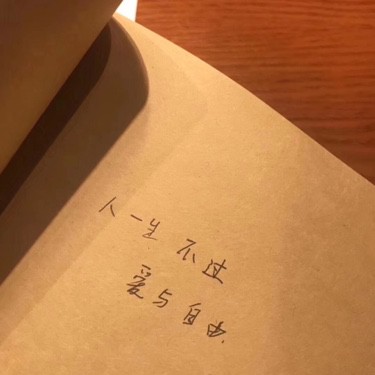 人一生 不过
爱与自由.